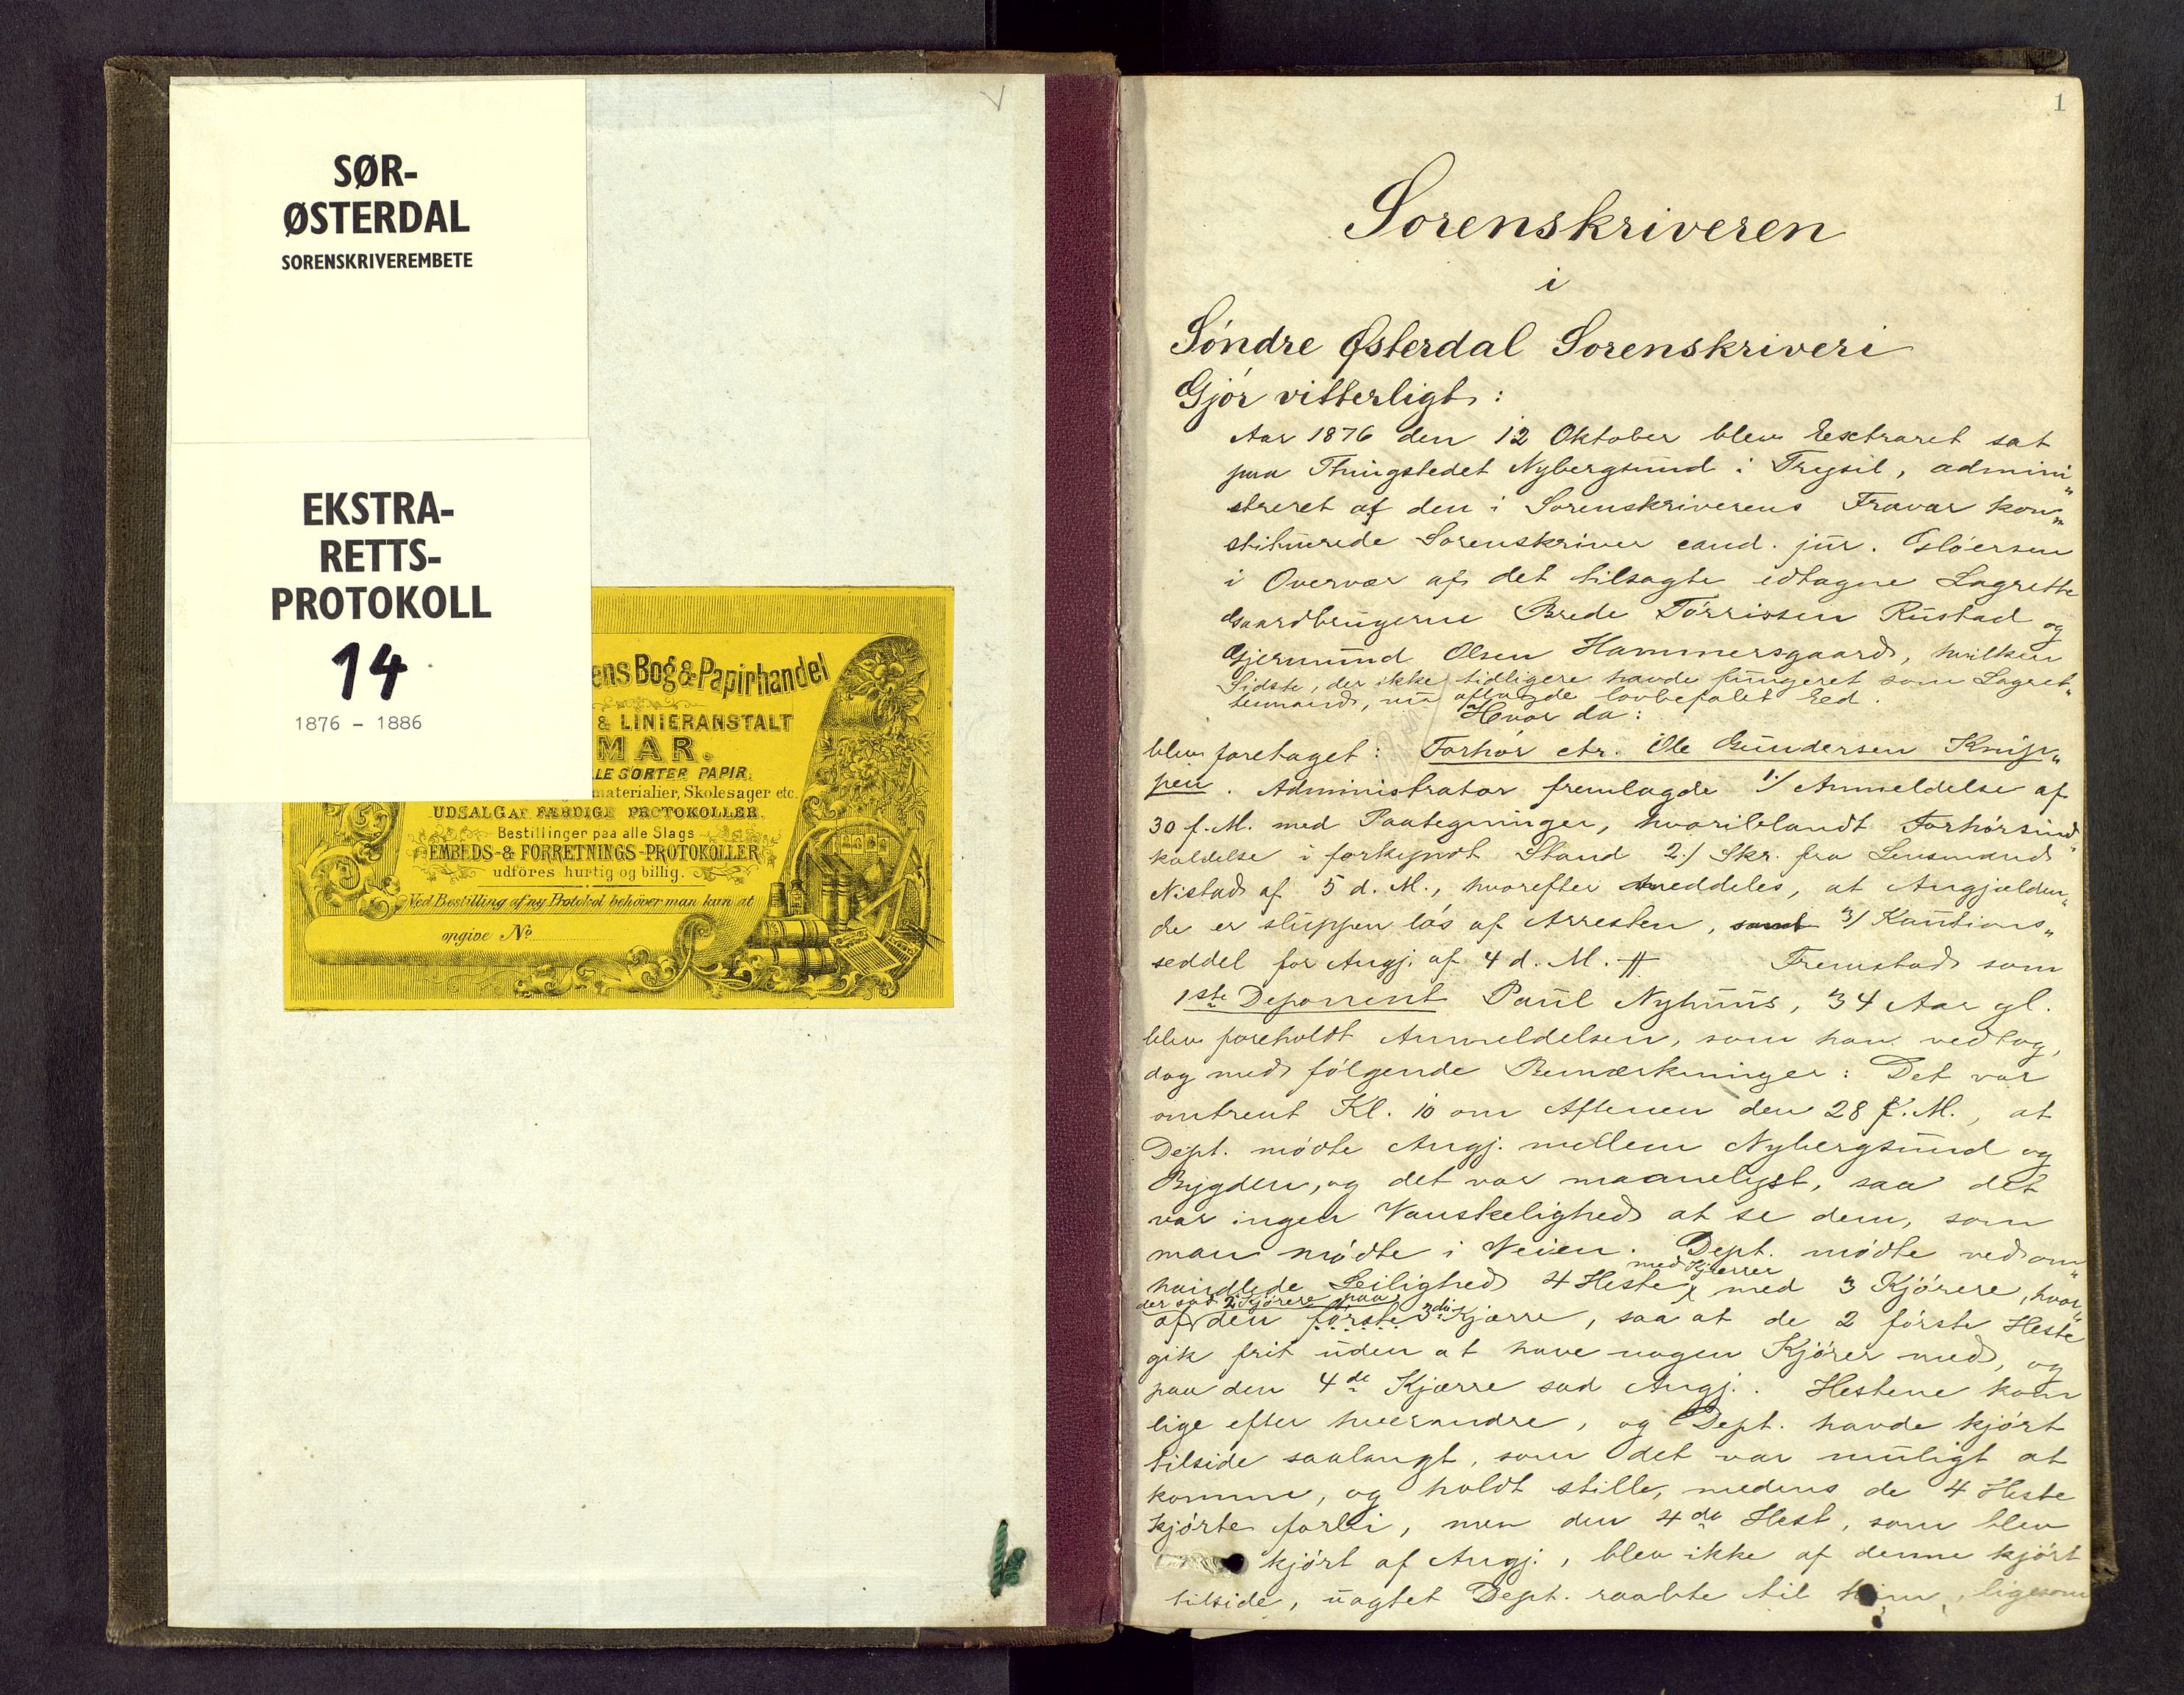 SØR-
ØSTERDAL
SORENSKRIVEREMBETE
EKSTRA-
RETTS-
PROTOKOLL
14
1876 - 1886
ens Bog & Papirhandel
& LINIERANSTALT
MAR.
LLE SORTER PAPIR,
materialier, Skolesager etc.
UDSALG AF FÆRDIGE PROTOKOLLER.
Bestillinger paa alle Slags
EMBEDS- & FORRETNINGS-PROTOKOLLER
udföres hurtig og billig.
Ved Bestilling af ny Protokol behöver man kun at
opgive No
1
Sorenskriveren
i
Söndre Østerdal Sorenskriveri
Gjör vitterligt:
Aar 1876 den 12 Oktober blev Extraret sat
paa Thingstedet Nybergsund i Trysil, admini„
streret af den i Sorenskriverens Fravær kon„
stituerede Sorenskriver cand. jur. Glöersen
i Overvær af det tilsagte edtagne Lagrette
Gaardbrugerne Brede Törrissen Rustad og
Gjermund Olsen Hammersgaard, hvilken
Sidste, der ikke tidligere havde fungeret som Lagret„
temand, nu aflagde lovbefalet Eed.
Hvor da:
blev foretaget: Forhör ctr. Ole Gundersen Knip„
pen. Administrator fremlagde 1/ Anmeldelse af
30 f. M. med Paategninger, hvoriblandt Forhörsind„
kaldelse i forkyndt Stand 2/ Skr. fra Lensmand
Nistad af 5 d. M., hvorefter meddeles, at Angjælden„
de er sluppen lös af Arresten, samt 3/ Kautions„
seddel for Angj. af 4 d. M. # Fremstod som
1ste Deponent Paul Nyhuus, 34 Aar gl.
blev foreholdt Anmeldelsen, som han vedtog,
dog med fölgende Bemærkninger: Det var
omtrent Kl. 10 om Aftenen den 28 f. M., at
Dept. mödte Angj. mellem Nybergsund og
Bygden, og det var maanelyst, saa det
var ingen Vanskelighed at se dem, som
man mödte i Veien. Dept. mödte ved om„
med Kjærrer
handlede Leilighed 4 Heste med 3 Kjörere, hvor„
der sad 2 Kjörere paa
af den förste 3die Kjærre, saa at de 2 förste Heste
gik frit uden at have nogen Kjörer med, og
paa den 4de Kjærre sad Angj. Hestene kom
lige efter hverandre, og Dept. havde kjört
tilside saalangt, som det var muligt at
komme, og holdt stille, medens de 4 Heste
kjörte forbi, men den 4de Hest, som blev
kjört af Angj., blev ikke af denne kjört
tilside, uagtet Dept. raabte til ham, ligesom